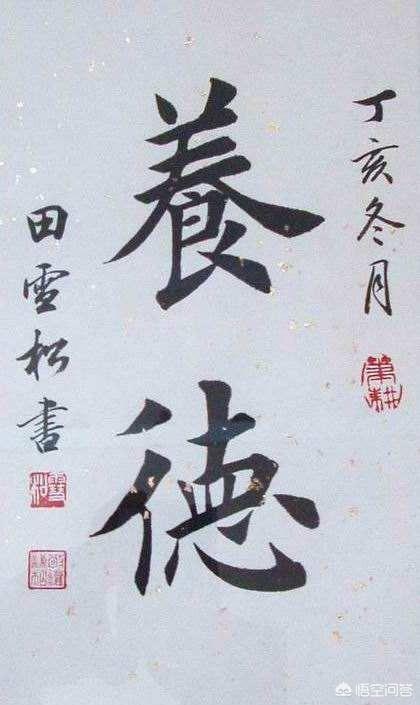 丁亥冬月
養德
田雪松書
悟空问答